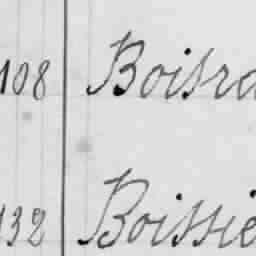 108 Boisra
132 Boissie